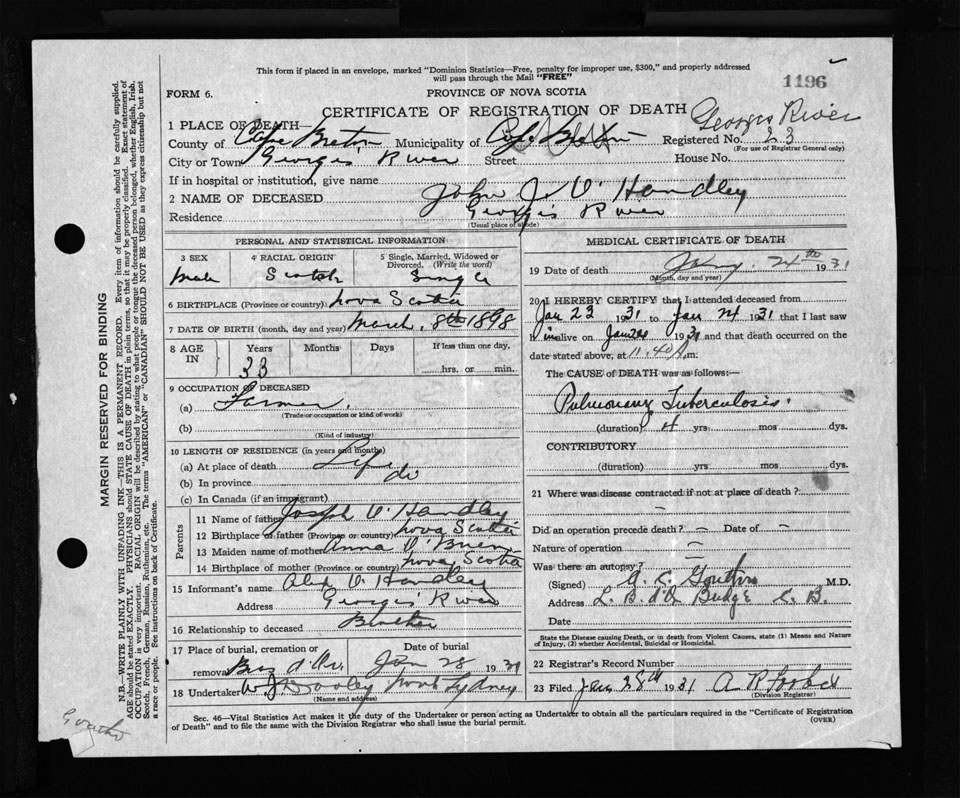 This form if placed in an envelope, marked "Dominion Statistics—Free, penalty for improper use, $300," and properly addressed
will pass through the Mail "FREE"
1196
FORM 6.
PROVINCE OF NOVA SCOTIA
CERTIFICATE OF REGISTRATION OF DEATH
Georges River
1 PLACE OF DEATH—
County of Cape Breton Municipality of Cape Breton Registered No. 23
(For use of Registrar General only)
City or Town Georges River Street House No.
If in hospital or institution, give name
2 NAME OF DECEASED John J O'Handley
Residence Georges River
(Usual place of abode)
PERSONAL AND STATISTICAL INFORMATION
3 SEX 4 RACIAL ORIGIN 5 Single, Married, Widowed or Divorced. (Write the word)
Male Scotch Single
6 BIRTHPLACE (Province or country) Nova Scotia
7 DATE OF BIRTH (month, day and year) March 8th 1898
8 AGE IN Years Months Days If less than one day,
33 hrs. or min.
9 OCCUPATION OF DECEASED
(a) Farmer
(Trade or occupation or kind of work)
(b)
(Kind of industry)
10 LENGTH OF RESIDENCE (in years and months)
(a) At place of death Life
(b) In province do
(c) In Canada (if an immigrant)
Parents
11 Name of father Joseph O'Handley
12 Birthplace of father (Province or country) Nova Scotia
13 Maiden name of mother Anna O'Brien
14 Birthplace of mother (Province or country) Nova Scotia
15 Informant's name Alex O'Handley
Address Georges River
16 Relationship to deceased Brother
17 Place of burial, cremation or removal Date of burial
Bras d'Or Jan 28 1931
18 Undertaker W J Dooley North Sydney
(Name and address)
MEDICAL CERTIFICATE OF DEATH
19 Date of death 24th 1931
(Month, day and year)
20 I HEREBY CERTIFY that I attended deceased from
Jan 23 1931 to Jan 24 1931 that I last saw
him alive on 1931 and that death occurred on the
date stated above, at 11.40 m:
The CAUSE of DEATH was as follows:—
Pulmonary Tuberculosis.
(duration) 4 yrs. mos. dys.
CONTRIBUTORY
(duration) yrs. mos. dys.
21 Where was disease contracted if not at place of death?
Did an operation precede death? – Date of –
Nature of operation –
Was there an autopsy?
(Signed) M.D.
Address C. B.
Date
State the Disease causing Death, or in death from Violent Causes, state (1) Means and Nature
of Injury, (2) whether Accidental, Suicidal or Homicidal.
22 Registrar's Record Number
23 Filed Jan 28th 1931 A R Forbes
(Division Registrar)
Sec. 46—Vital Statistics Act makes it the duty of the Undertaker or person acting as Undertaker to obtain all the particulars required in the "Certificate of Registration
of Death" and to file the same with the Division Registrar who shall issue the burial permit.
(OVER)
MARGIN RESERVED FOR BINDING
N.B.—WRITE PLAINLY WITH UNFADING INK—THIS IS A PERMANENT RECORD. Every item of information should be carefully supplied.
AGE should be stated EXACTLY. PHYSICIANS should STATE CAUSE OF DEATH in plain terms, so that it may be properly classified. Exact statement of
OCCUPATION is very important. RACIAL ORIGIN will be described by stating to what people or tongue the deceased person belonged, whether English, Irish,
Scotch, French, German, Russian, Ruthenian, etc. The terms "AMERICAN" or "CANADIAN" SHOULD NOT BE USED as they express citizenship but not
a race or people. See instructions on back of Certificate.